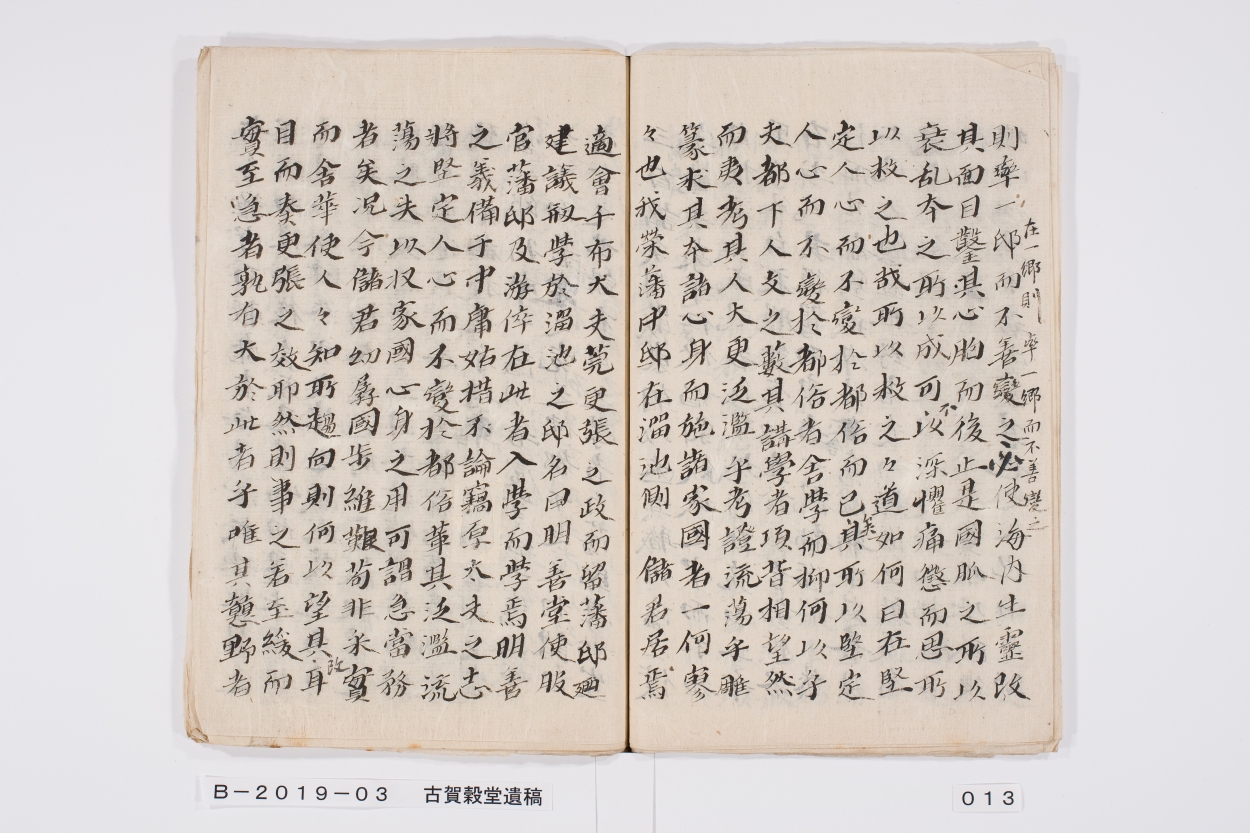 則率一邸而不善變之必使海内生靈改
在一郷則率一郷而不善變之
其面目鑿其心胎而後止是國脈之所以
衰乱夲之所以成可不以深懼痛懲而思所
以救之也哉所以救之々道如何曰在堅
定人心而不變於都俗而已矣其所以堅定
人心而不變於都俗者舍學而抑何以乎
夫都下人文之藪其講學者項背相望然
而夷考其人大更泛濫乎考證流蕩乎雕
篆求其夲諸心身而施諸家國者一何寥
々也我榮藩中邸在溜池側 儲君居焉
適會千布大夫莞更張之政而留藩邸廼
建議剏學於溜池之邸名曰明善堂使服
官藩邸及游倅在此者入學而學焉明善
之義備于中庸姑措不論竊原大夫之志
將堅定人心而不變於都俗革其泛濫流
蕩之失以収家國心身之用可謂急當務
者矣况今儲君幼孱國步維艱苟非求實
而舍華使人々知所趨向則何以望其改耳
目而奏更張之效耶然則事之若至緩而
實至急者孰有大於此者乎唯其戇野者
B－2019－03 古賀穀堂遺稿
013